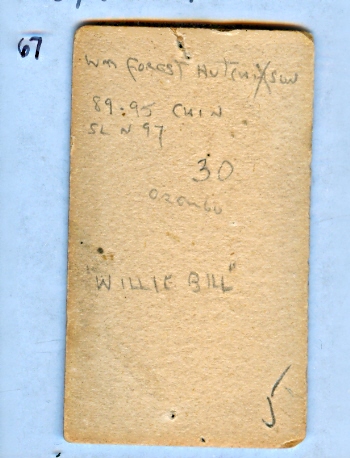 67
WM FOREST HUTCHINSON
89-95 CHIN
SL N 97
30
"WILLIE BILL"
5